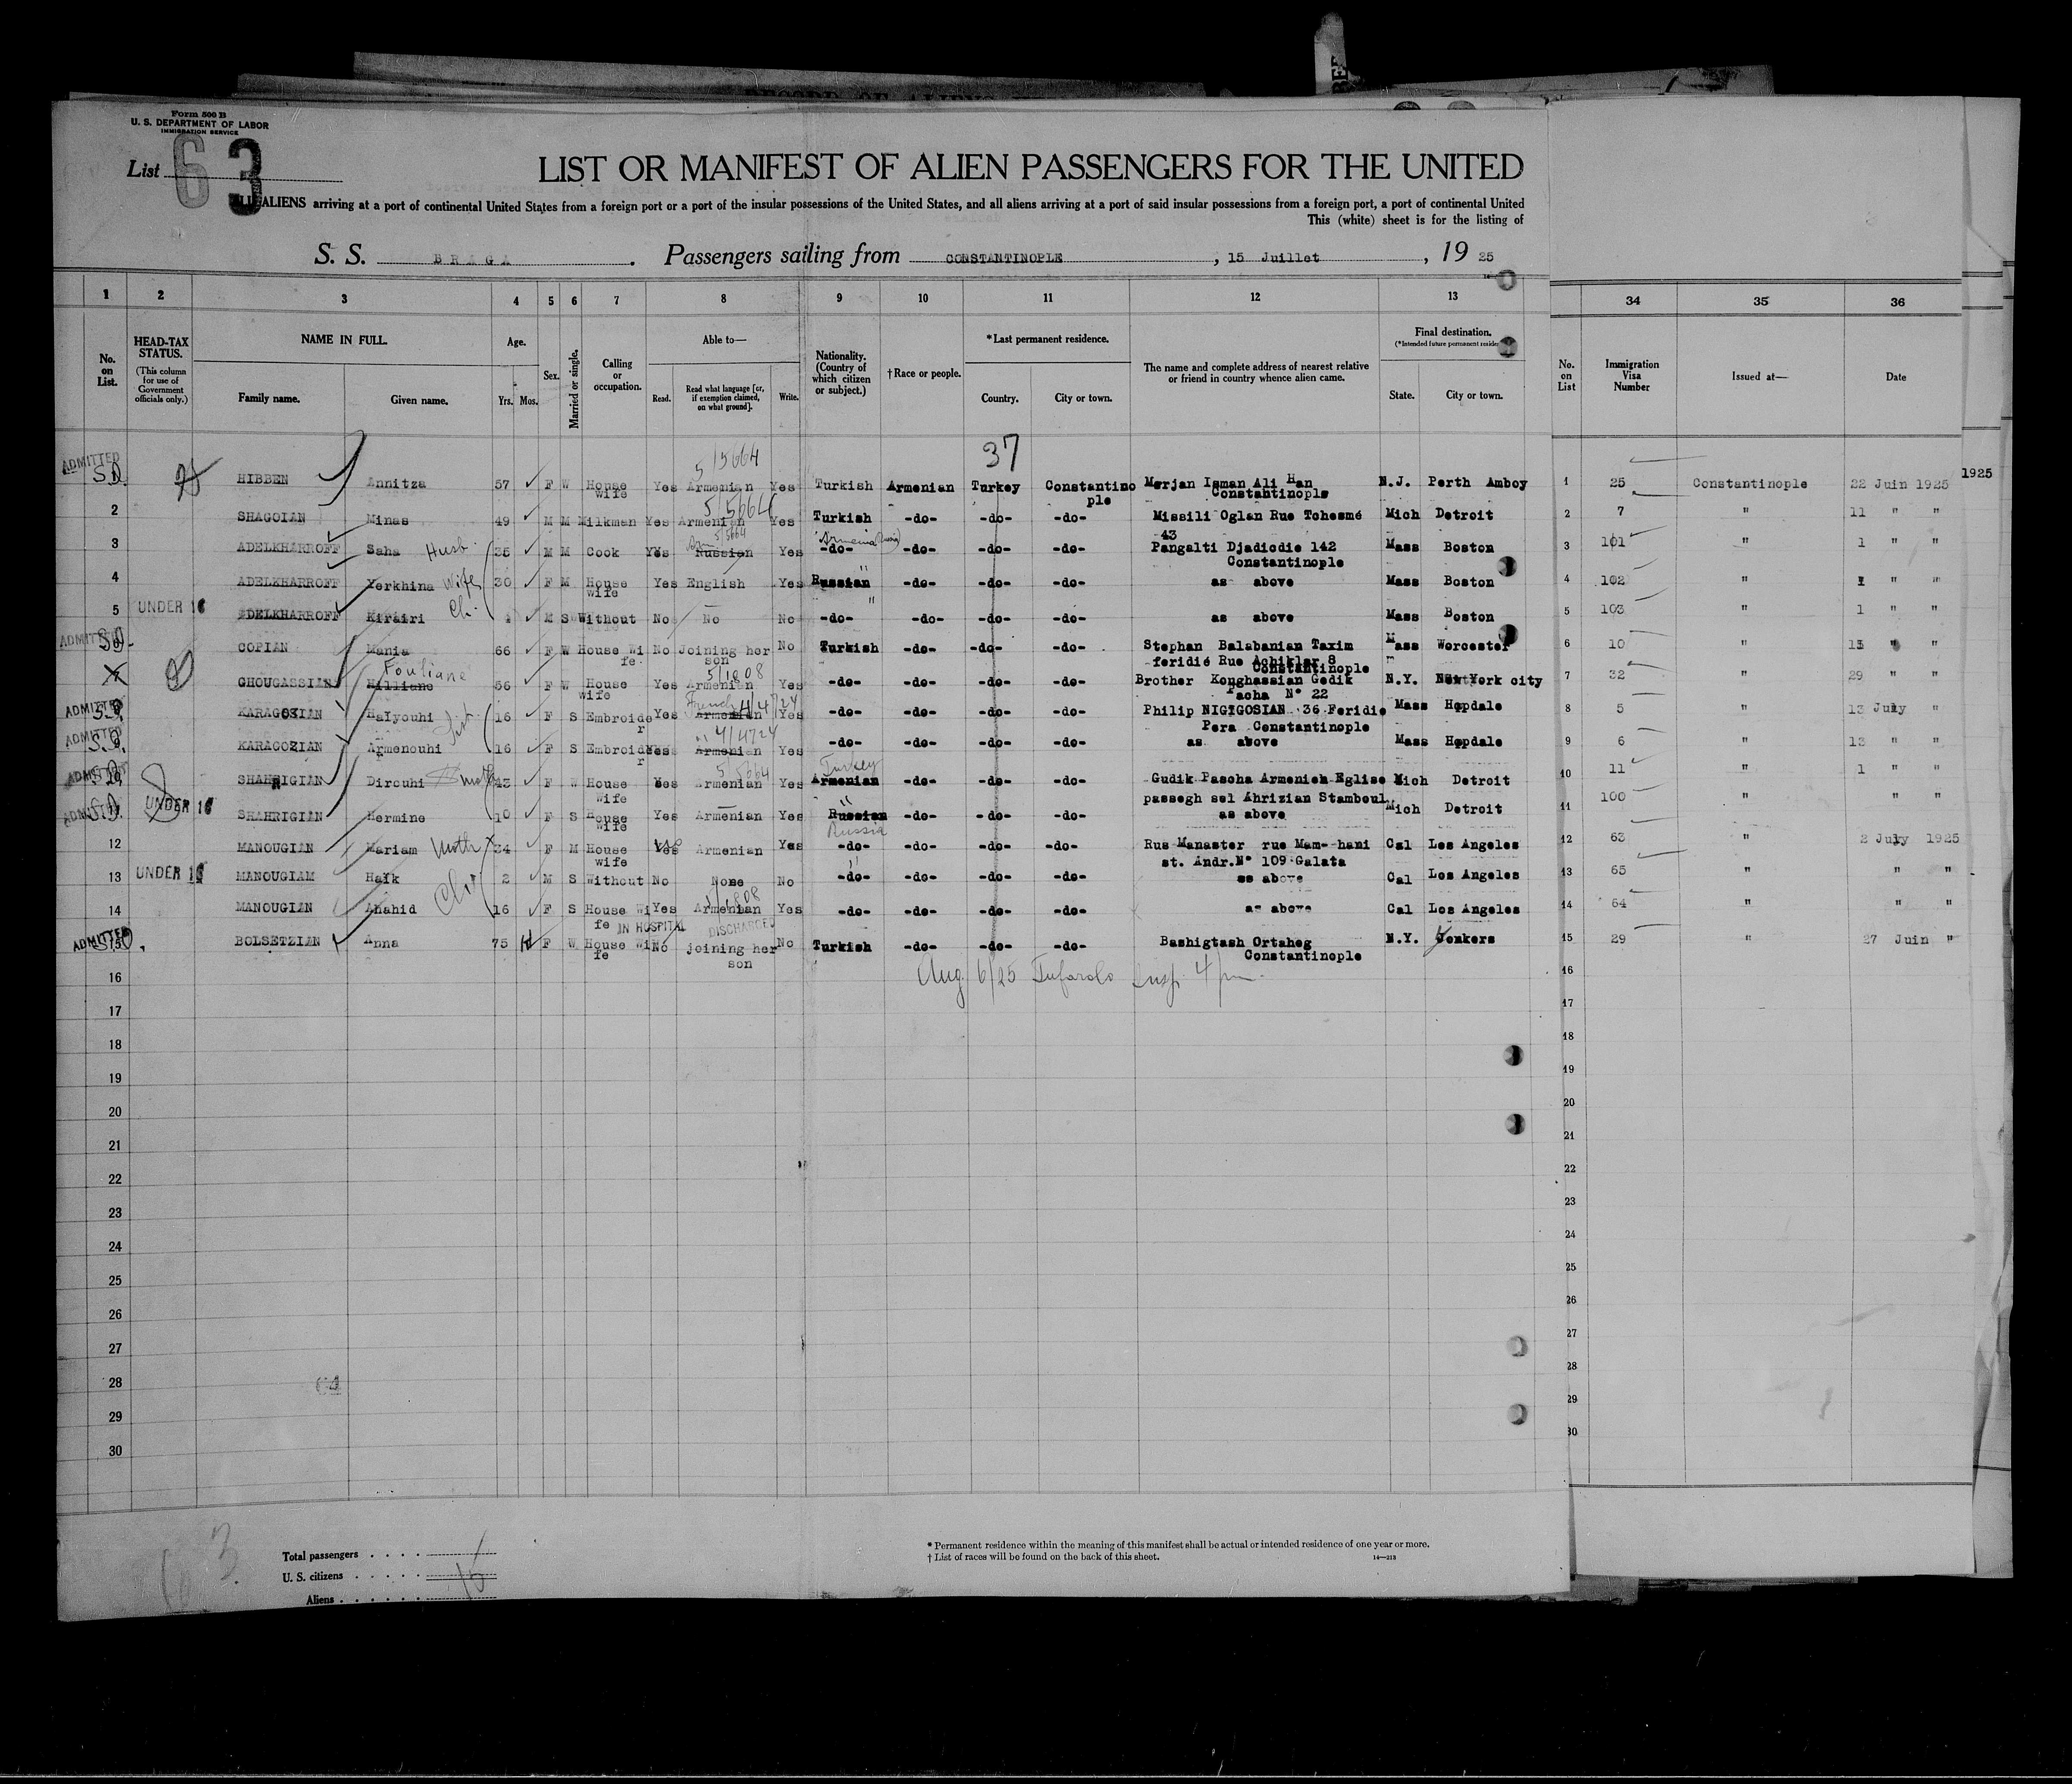 Form 500 B
U. S. DEPARTMENT OF LABOR
IMMIGRATION SERVICE
List 63
LIST OR MANIFEST OF ALIEN PASSENGERS FOR THE UNITED
ALL ALIENS arriving at a port of continental United States from a foreign port or a port of the insular possessions of the United States, and all aliens arriving at a port of said insular possessions from a foreign port, a port of continental United
This (white) sheet is for the listing of
S. S. BRAGA. Passengers sailing from CONSTANTINOPLE, 15 Juillet, 1925
1 2 3 4 5 6 7 8 9 10 11 12 13 34 35 36
No. on List. HEAD-TAX STATUS. (This column for use of Government officials only.) NAME IN FULL. Family name. Given name. Age. Yrs. Mos. Sex. Married or single. Calling or occupation. Able to— Read. Read what language [or, if exemption claimed, on what ground]. Write. Nationality. (Country of which citizen or subject.) †Race or people. *Last permanent residence. Country. City or town. The name and complete address of nearest relative or friend in country whence alien came. Final destination. (*Intended future permanent residence) State. City or town. No. on List Immigration Visa Number Issued at— Date
37
5/5664
ADMITTED S.I. HIBBEN Annitza 57 F W House wife Yes Armenian Yes Turkish Armenian Turkey Constantinople Merjan Isman Ali Han Constantinople N.J. Perth Amboy 1 25 Constantinople 22 Juin 1925 1925
5/5664
2 SHAGOIAN Minas 49 M M Milkman Yes Armenian Yes Turkish -do- -do- -do- Missili Oglan Rue Tchesmé 43 Mich Detroit 2 7 " 11 " "
3 ADELKHARROFF Saha Husb. 35 M M Cook Yes Russian 5/5664 Yes -do- Armenia (Russia) -do- -do- -do- Pangalti Djadiodie 142 Constantinople Mass Boston 3 101 " 1 " "
4 ADELKHARROFF Yerkhina Wife 30 F M House wife Yes English Yes Russian " -do- -do- -do- as above Mass Boston 4 102 " 1 " "
5 UNDER 16 ADELKHARROFF Kirairi Ch. M S Without No No No -do- " -do- -do- -do- as above Mass Boston 5 103 " 1 " "
ADMITTED COPIAN Mania 66 F W House Wife No Joining her son No Turkish -do- -do- -do- Stephan Balabanian Taxim feridié Rue Achiklar 8 Constantinople Mass Worcester 6 10 " 15 " "
7 GHOUGASSIAN Fouliane 56 F W House wife Yes Armenian 5/1808 Yes -do- -do- -do- -do- Brother Konghassian Gedik Pacha N° 22 N.Y. New York city 7 32 " 29 " "
ADMITTED KARAGOZIAN Haïyouhi 16 F S Embroider Yes Armenian French 4/4724 Yes -do- -do- -do- -do- Philip NIGIGOSIAN 36 Feridie Pera Constantinople Mass Hopdale 8 5 " 13 July "
ADMITTED KARAGOZIAN Armenouhi 16 F S Embroider Yes Armenian " 4/4724 Yes -do- -do- -do- -do- as above Mass Hopdale 9 6 " 13 " "
ADMITTED SHAHRIGIAN Dirouhi moth 43 F W House wife Yes Armenian 5/5664 Yes Armenian Turkey -do- -do- do- Gudik Pascha Armenieh Eglise passegh sel Ahrizian Stamboul Mich Detroit 10 11 " 1 " "
ADMITTED UNDER 16 SHAHRIGIAN Hermine 10 F S House wife Yes Armenian Yes Russian " -do- -do- -do- as above Mich Detroit 11 100 " " "
12 MANOUGIAN Mariam Moth 34 F M House wife Yes Armenian Yes -do- Russia -do- -do- -do- Rus Manaster rue Mam- hani st. Andr.N° 109 Galata Cal Los Angeles 12 63 " 2 July 1925
13 UNDER 16 MANOUGIAM Haïk 2 M S Without No None No -do- " -do- -do- -do- as above Cal Los Angeles 13 65 " " "
14 MANOUGIAN Anahid 16 F S House Wife Yes Armenian Yes -do- -do- -do- -do- as above Cal Los Angeles 14 64 " " "
IN HOSPITAL DISCHARGED
ADMITTED BOLSETZIAN Anna 75 F W House Wife No joining her son No Turkish -do- -do- -do- Bashigtash Ortaheg Constantinople N.Y. Jonkers 15 29 " 27 Juin "
Aug 6/25 Insp. 4 pm
16 16
17 17
18 18
19 19
20 20
21 21
22 22
23 23
24 24
25 25
26 26
27 27
28 28
29 29
30 30
63
Total passengers
U. S. citizens
Aliens
* Permanent residence within the meaning of this manifest shall be actual or intended residence of one year or more.
† List of races will be found on the back of this sheet. 14—213